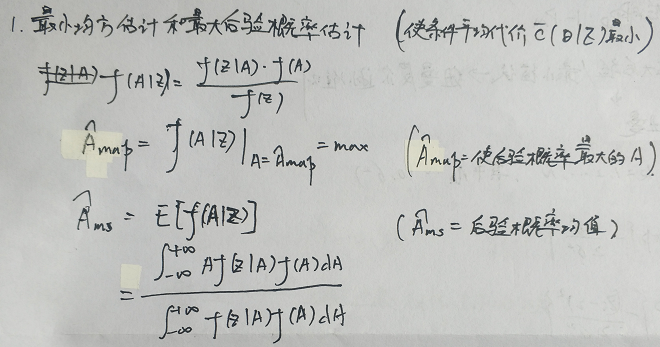 1. 最小均方估计和最大后验概率估计 (使条件平均代价 c̄(θ|Z)最小)
f(A|Z) = f(Z|A)·f(A) / f(Z)
Âmap = f(A|Z)|A=Âmap = max (Âmap=使后验概率最大的A)
Âms = E[f(A|Z)] (Âms = 后验概率均值)
= ∫-∞+∞ Af(Z|A)f(A)dA / ∫-∞+∞ f(Z|A)f(A)dA